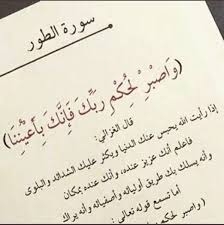 سورة الطور
(وَاصْبِرْ لِحُكْمِ رَبِّكَ فَإِنَّكَ بِأَعْيُنِنَا)
قال الغزالي:
إذا رأيت الله يحبس عنك الدنيا ويكثر عليك الشدائد والبلوى
فاعلم أنك عزيز عنده، وأنك عنده بمكان
وأنه يسلك بك طريق أوليائه وأصفيائه وأنه يراك
أما تسمع قوله تعالى:
(واصبر لحكم ربك